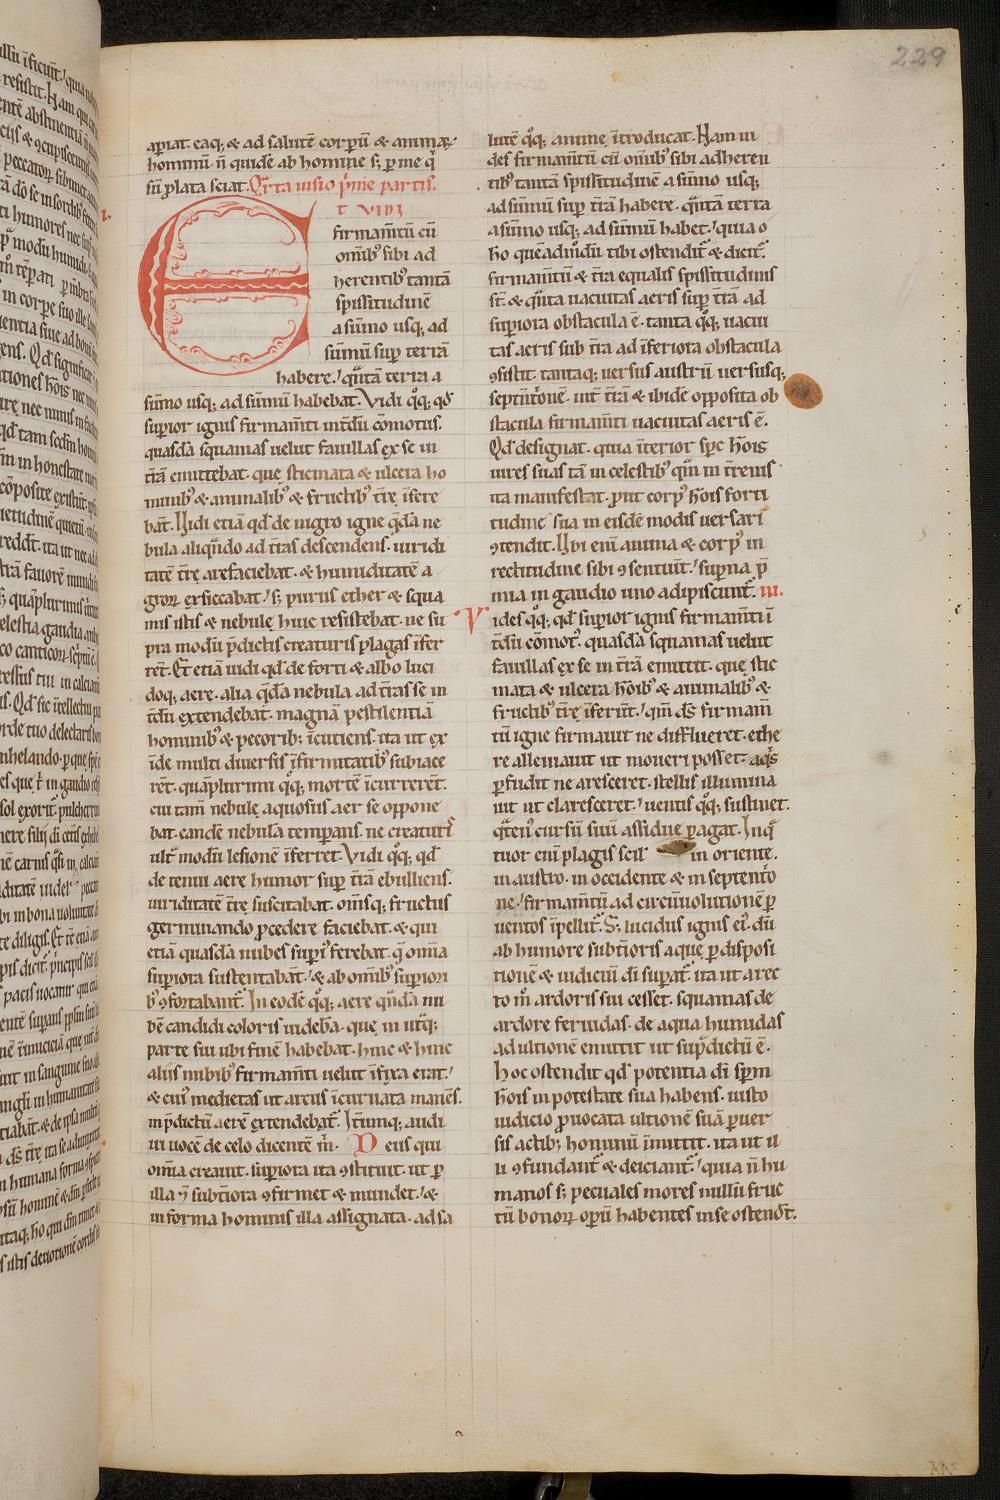 229
apiat. eaq; & ad salutē corpū & animaꝝ
hominū. ñ quidē ab homine s; p me q̇
sū plata sciat. Qrta uisio p̓me partis.
I.
ET VIDI
firmam̄tū cū
om̄ib᾿ sibi ad
herentib᾿ tantā
spissitudinē
a sūmo usq; ad
sūmū sup terrā
habere.᾿ q̄ntā terra a
sūmo usq; ad sūmū habebat. Vidi q̊q; qd̓
supior ignis firmam̄ti int̄dū cōmotus.
quasdā squamas uelut fauillas ex se in
t̄rā emittebat. que sticmata & ulcera ho
minib᾿ & animalib᾿ & fructib᾿ t̄rę īfere
bāt. Uidi etiā qd̓ de nigro igne q̄dā ne
bula aliqn̄do ad t̄ras descendens. uiridi
tatē t̄rę arefaciebat. & humiditatē a
groꝝ exsiccabat.᾿ s; purus ether & squa
mis istis & nebulę huic resistebat. ne su
pra modū p̄dictis creaturis plagas īfer
rēt. Et etiā uidi qd̓ de forti & albo luci
doq; aere. alia q̄dā nebula ad t̄ras se in
t̄dū extendebat. magnā pestilentiā
hominib᾿ & pecorib; īcutiens. ita ut ex
īde multi diuersis īfirmitatib᾿ subiace
rēt. quāplurimi q̊q; mortē īcurrerēt.
cui tam̄ nebule aquosus aer se oppone
bat. eandē nebulā temperans. ne creaturis
ult᾿ modū lesionē īferret. Vidi q̊q; qd̓
de tenui aere humor sup t̄rā ebulliens.
uiriditatē t̄rę suscitabat. omīsq; fructus
germinando pcedere faciebat. & qui
etiā quasdā nubes supi᾿ ferebat. q̄ om̄ia
supiora sustentabāt.᾿ & ab om̄ib᾿ superiori
b᾿ ꝯfortabant᾿. In eodē q̊q; aere qn̄dā nu
bē candidi coloris uideba. que in ut̄q;
parte sui ubi finē habebat. hinc & hinc
aliis nubib᾿ firmam̄ti uelut īfixa erat.᾿
& eius medietas ut arcus īcuruata manēs.
in p̄dictū aerē extendebat᾿. It̄umq; audi
ui uocē de celo dicentē m̄. Deus qui
om̄ia creauit. supiora ita ꝯstituit. ut p
illa ⁊ subt̄iora ꝯfirmet & mundet.᾿ &
in forma hominis illa assignata. ad sa
lutē q̊q; anime ītroducat. Nam ui
des firmam̄tū cū om̄ib᾿ sibi adheren
tib᾿ tantā spissitudinē a sūmo usq;
ad sūmū sup t̄rā habere. q̄ntā terra
a sūmo usq; ad sūmū habet.᾿ quia o
ho quēadmodū tibi ostendit᾿ & dicit᾿.
firmam̄tū & t̄ra equalis spissitudinis
st̄. & q̄nta uacuitas aeris sup t̄rā ad
supiora obstacula ē. tanta q̊q; uacui
tas aeris sub t̄ra ad īferiora obstacula
ꝯsistit. tantaq; uersus austrū uersusq;
septent᾿onē. int̄ t̄rā & ibidē opposita ob
stacula firmam̄ti uacuitas aeris ē.
Qd̓ designat. quia īterior spc h̄ois
uires suas tā in celestib᾿ q̄m in t̄renis
ita manifestat. put corp᾿ h̄ois forti
tudinē sua in eisdē modis uersari
ꝯtendit. Ubi eni anima & corp᾿ in
rectitudine sibi ꝯsentiūt.᾿ supna p̄
mia in gaudio uno adipiscunt᾿. III.
Vides q̊q; qd̓ supior ignis firmam̄ti ī
t̄dū cōmot᾿. quasdā squamas uelut
fauillas ex se in t̄rā emittit. que stic
mata & ulcera h̄oib᾿ & animalib᾿ &
fructib᾿ t̄rę īferūt.᾿ qm̄ ds̄ firmam̄
tū igne firmauit ne difflueret. ethe
re alleuiauit ut moueri posset. aqīs
pfudit ne aresceret. stellis illumina
uit ut claresceret.᾿ uentis q̊q; sustinet.
q̄ten᾿ cursū suū assidue pagat. In q᾿
tuor eni plagis scil in oriente.
in austro. in occidente & in septento
ne.᾿ firmam̄tū ad circūuolutionē p
uentos īpellit᾿. S; lucidus ignis ei᾿. dū
ab humore subt̄ioris aque p disposi
tionē & iudiciū di supat᾿. ita ut a rec
to m̄ ardoris sui cesset. squamas de
ardore feruidas. de aqua humidas
ad ultionē emittit ut sup̄dictū ē.
Hoc ostendit qd̓ potentia dī spm̄
h̄ois in potestate sua habens. iusto
iudicio puocata ultionē suā puer
sis actib; hominū īmittit. ita ut il
li ꝯfundant᾿ & deiciant᾿.᾿ quia ñ hu
manos s; pecuales mores nullū fruc
tū bonoꝝ opū habentes in se ostendūt.